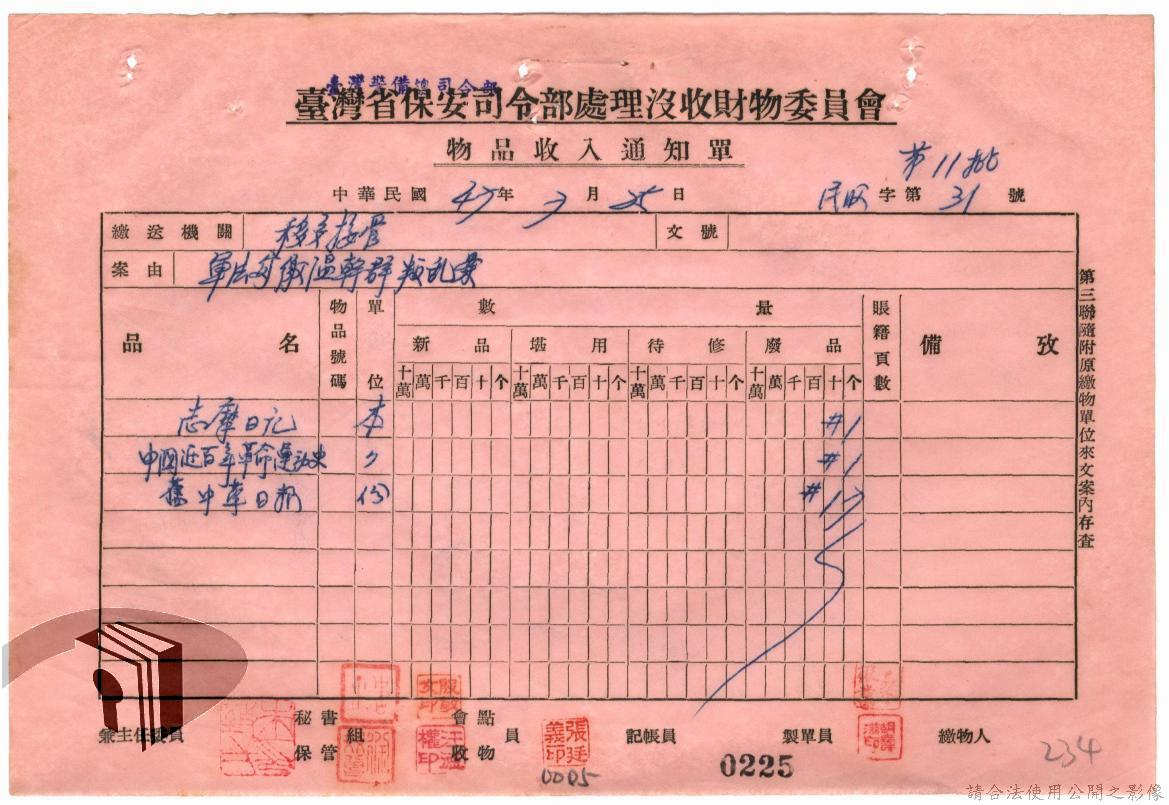 臺灣警備總司令部
臺灣省保安司令部處理沒收財物委員會
物品收入通知單
第11批
中華民國 47年 7月 25日 字第 31 號
繳送機關 移交接管 文號
案由 軍法 溫幹群叛乱案
品名 物品號碼 單位 數量 賬籍頁數 備攷
新品 堪用 待修 廢品
十萬 萬 千 百 十 个 十萬 萬 千 百 十 个 十萬 萬 千 百 十 个 十萬 萬 千 百 十 个
志摩日记 本 #1
中國近百年革命運动史 〃 #1
舊中華日报 份
第三聯隨附原繳物單位來文案內存查
兼主任委員 秘書 保管 組 會點 收物 員 記帳員 製單員 繳物人
張廷義印
0005
0225
234
請合法使用公開之影像